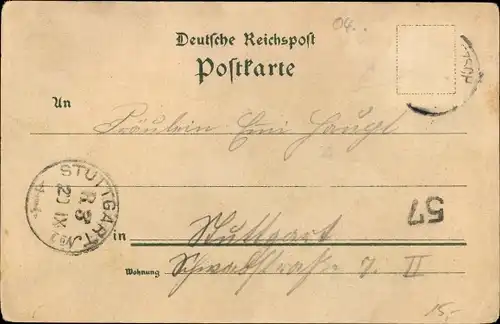 04.
Deutsche Reichspost
Postkarte
An
Fräulein Emi
57
STUTTGART
R. 3
20 IX
No 2
in Stuttgart
Wohnung Schwabstraße 7. II
15,-